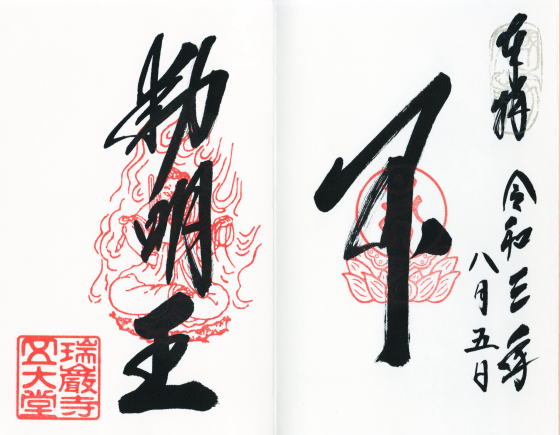 奉拝
令和三年
八月五日
不
動明王
瑞巌寺
五大堂